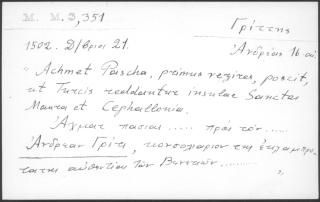 M. M. 3, 351
Γρίττης
1502. Δ/βρίοι 21.
Ἀνδρέας 16 αἰ.
"Achmet Pascha, primus vezires, poscit,
ut Turcis reddantur insulae Sanctae
Maura et Cephallonia.
Ἀχμὰτ πασίας ..... πρὸς τὸν .....
Ἀνδρέαν Γρίτι, κονσολιάριον τῆς ἐκλαμπρο-
τάτης αὐθεντίου τῶν Βενετικῶν ........... "